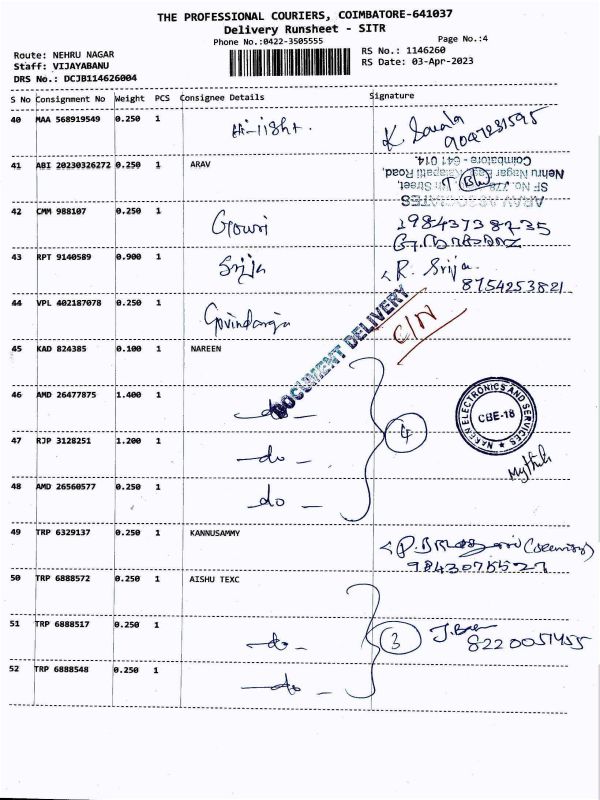 THE PROFESSIONAL COURIERS, COIMBATORE-641037
Delivery Runsheet - SITR
Phone No.:0422-3505555
Page No.:4
Route: NEHRU NAGAR
RS No.: 1146260
Staff: VIJAYABANU
RS Date: 03-Apr-2023
DRS No.: DCJB114626004
S No Consignment No Weight PCS Consignee Details Signature
40 MAA 568919549 0.250 1 Hi-light. K. Sarala
9047231595
41 ABI 20230326272 0.250 1 ARAV
ARAV ASSOCIATES
SF No. 778, Street,
Nehru Nagar East, Kalapatti Road,
Coimbatore - 641 014.
42 CMM 988107 0.250 1 Gowri 19843738735
43 RPT 9140589 0.900 1 Srija R. Srija.
8754253821
44 VPL 402187078 0.250 1 Govindaraja
DOCUMENT DELIVERY
C/N
45 KAD 824385 0.100 1 NAREEN
46 AMD 26477875 1.400 1 - do -
47 RJP 3128251 1.200 1 - do - 4
48 AMD 26560577 0.250 1 do -
NAREN ELECTRONICS AND SERVICES
CBE-18
Mythili
49 TRP 6329137 0.250 1 KANNUSAMMY
9843075527
50 TRP 6888572 0.250 1 AISHU TEXC
51 TRP 6888517 0.250 1 - do - 3
8220057455
52 TRP 6888548 0.250 1 - do -